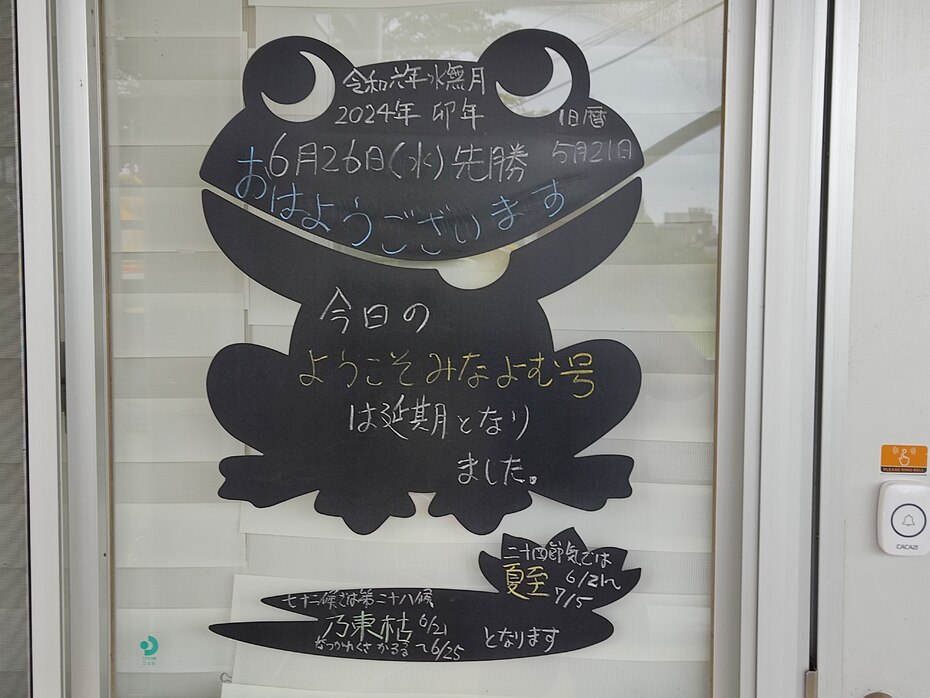 令和六年水無月
2024年 卯年
旧暦
6月26日(水)先勝
5月21日
おはようございます
今日の
ようこそみなよむ号
は延期となり
ました。
二十四節気では
夏至 6/21〜
7/5
七十二候では第二十八候
乃東枯 6/21
なつかれくさかるる 〜6/25
となります
PLEASE RING BELL
CACAZI